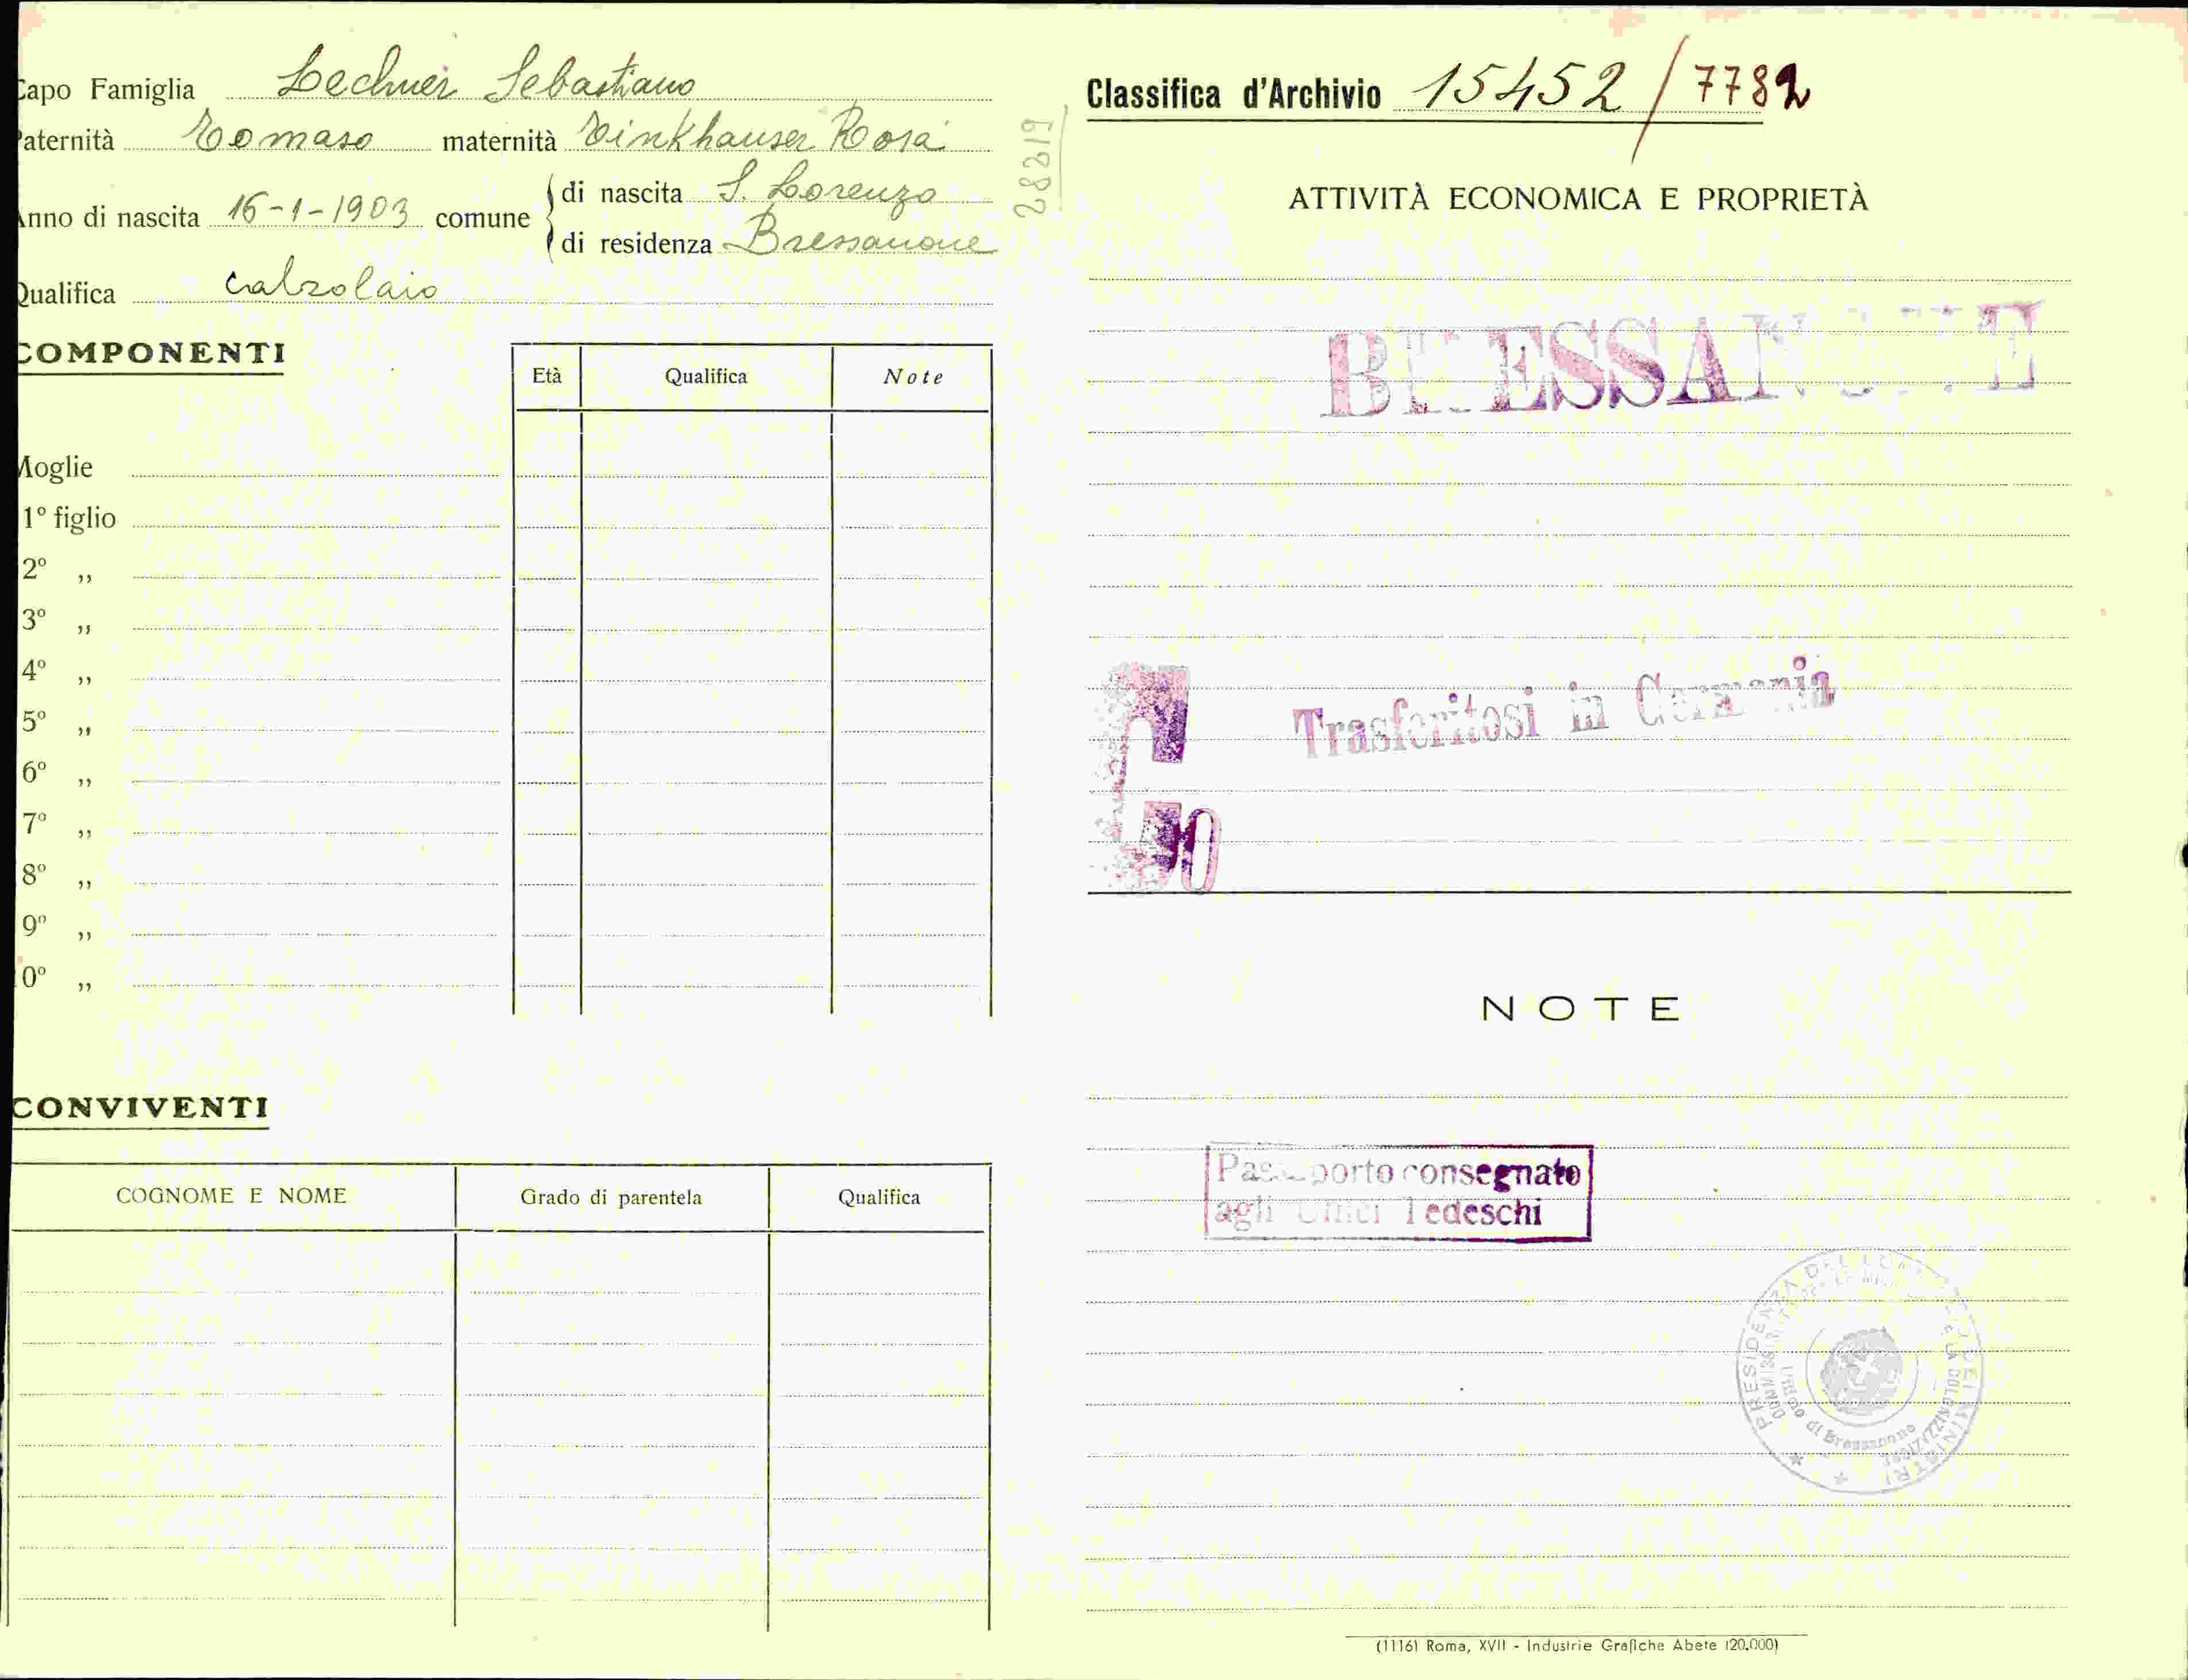 Capo Famiglia Lechner Sebastiano
Paternità Tomaso maternità Tinkhauser Rosa
Anno di nascita 16-1-1903 comune di nascita S. Lorenzo
di residenza Bressanone
Qualifica calzolaio
COMPONENTI
Età Qualifica Note
Moglie
1° figlio
2° ,,
3° ,,
4° ,,
5° ,,
6° ,,
7° ,,
8° ,,
9° ,,
10° ,,
CONVIVENTI
COGNOME E NOME Grado di parentela Qualifica
28219
Classifica d'Archivio 15452/7782
ATTIVITÀ ECONOMICA E PROPRIETÀ
BRESSANONE
Trasferitosi in Germania
NOTE
Passaporto consegnato
agli Uffici Tedeschi
PRESIDENZA DEL CONSIGLIO DEI MINISTRI
di Bressanone
(1116) Roma, XVII - Industrie Grafiche Abete (20.000)